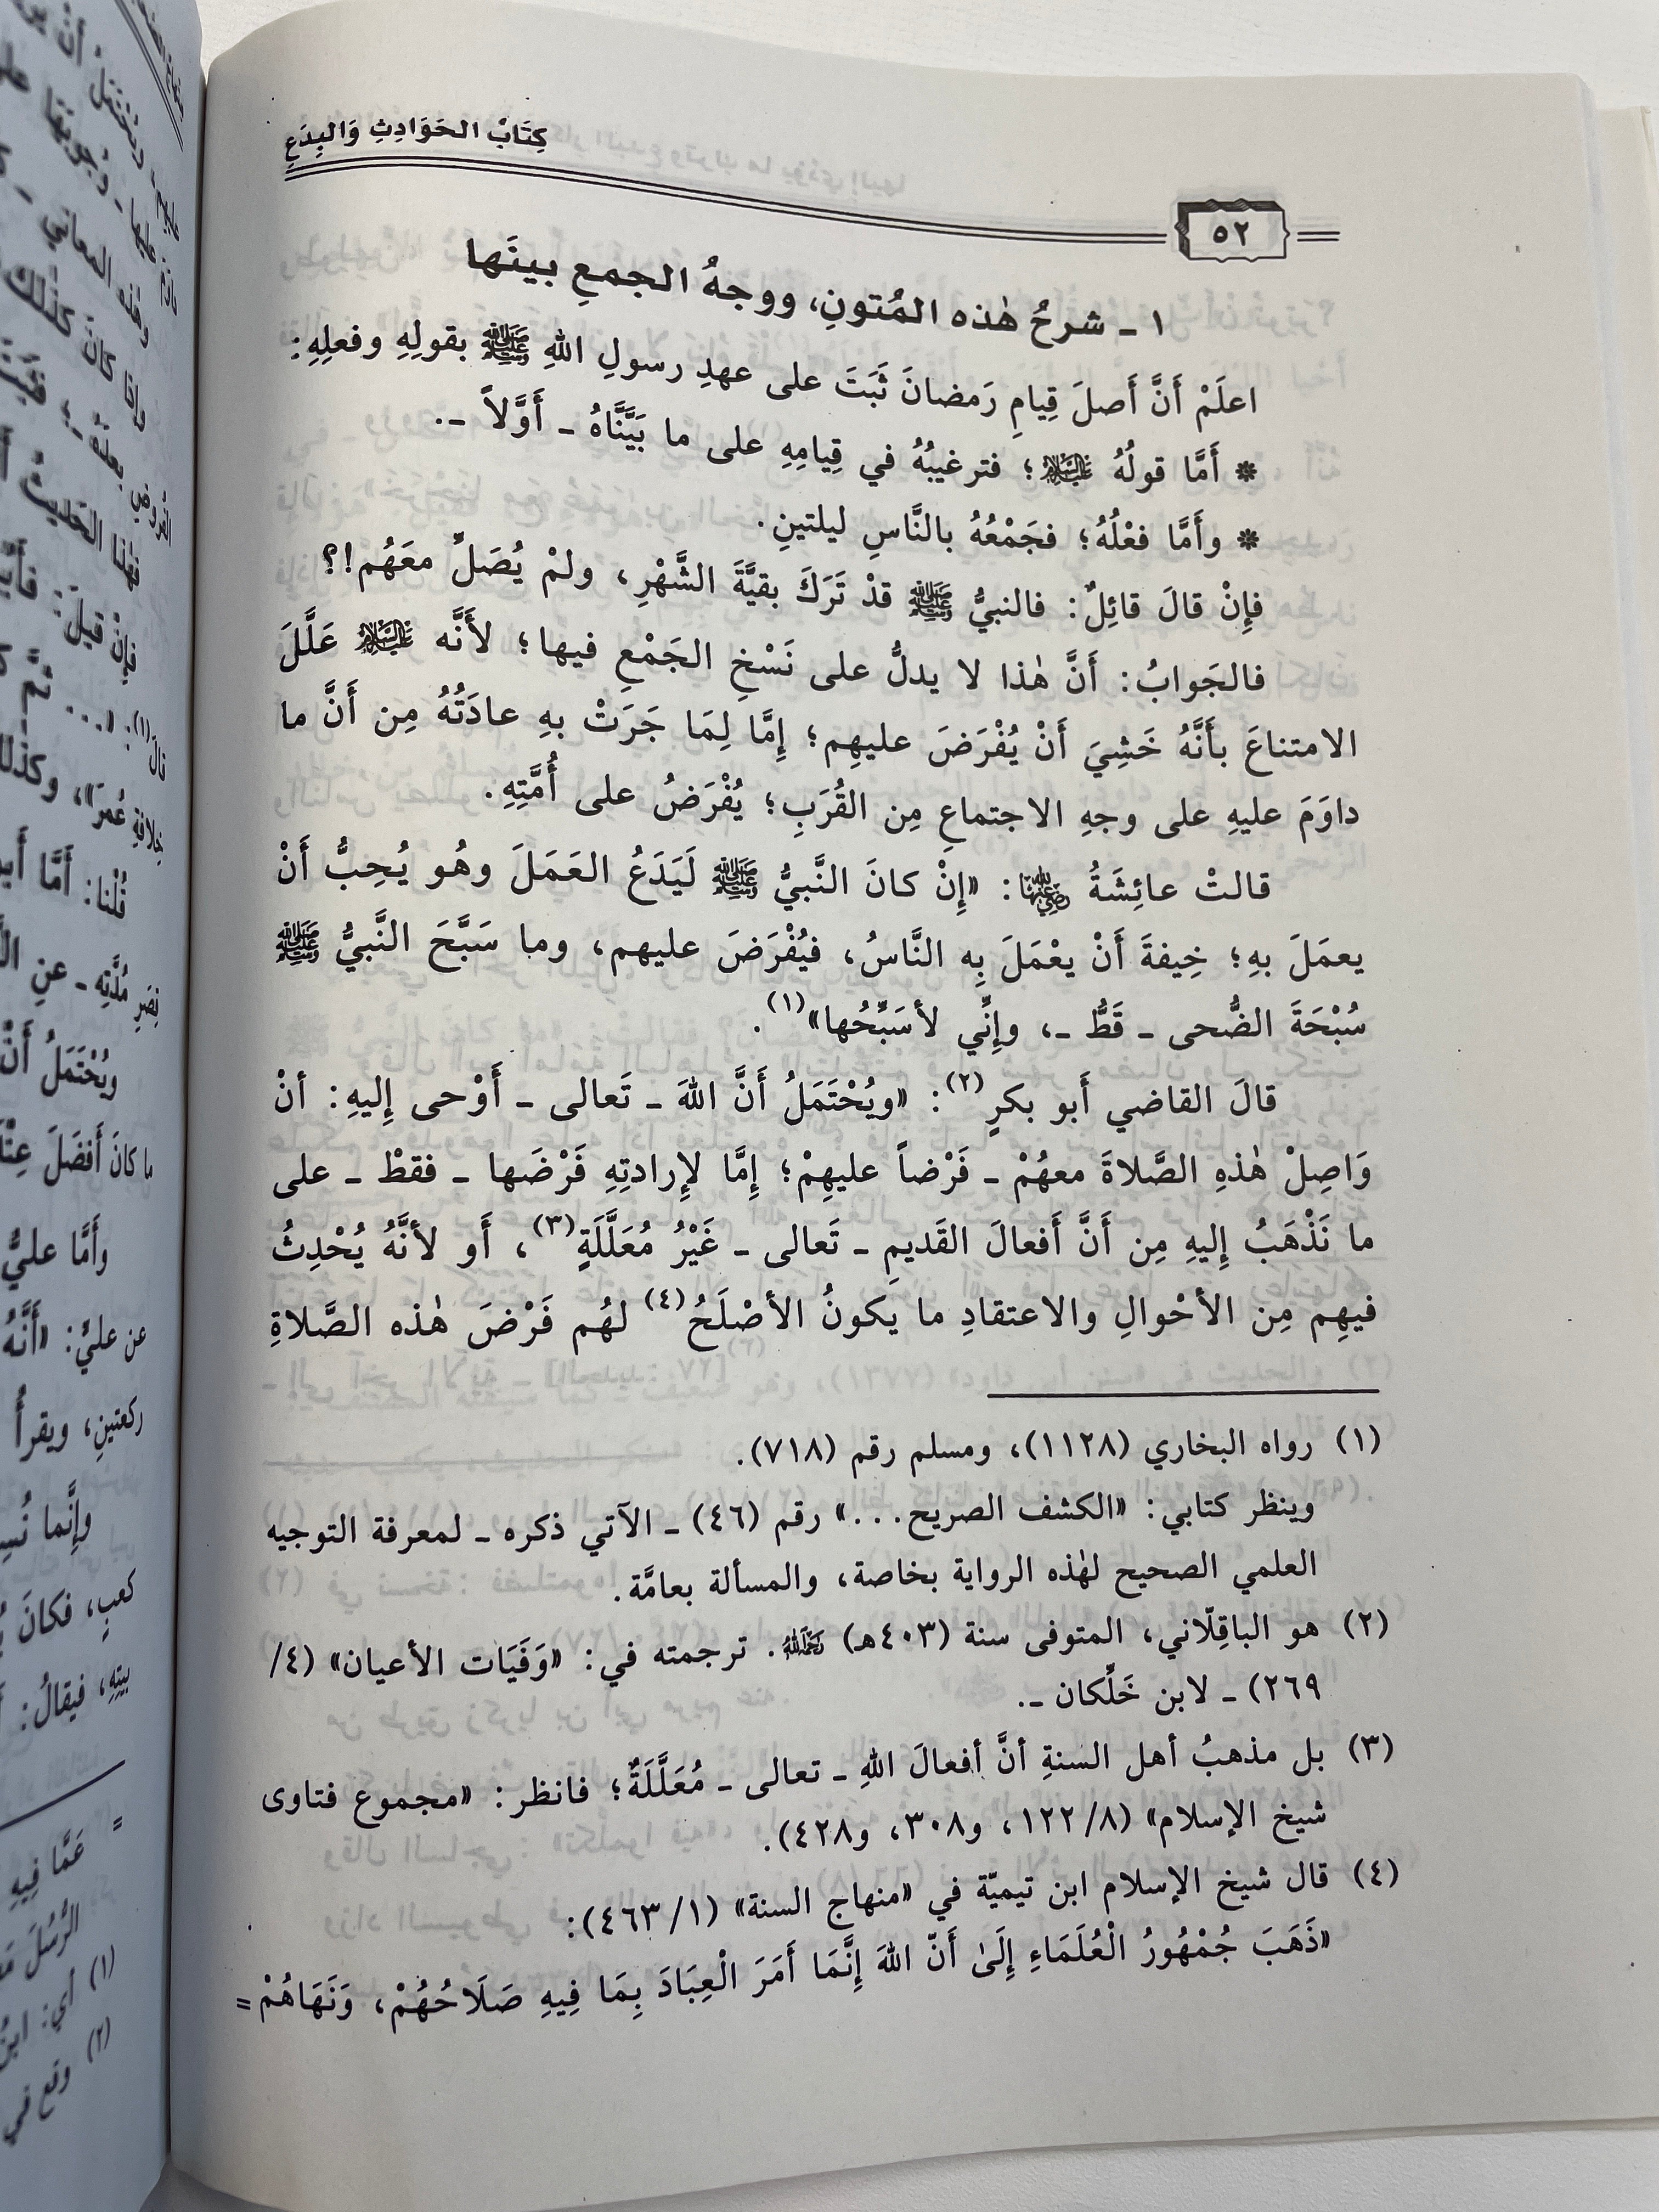 كِتَابُ الحَوَادِثِ وَالبِدَعِ
٥٢
١ ـ شرحُ هٰذه المُتونِ، ووجهُ الجمعِ بينَها
اعلَمْ أَنَّ أَصلَ قِيامِ رَمضانَ ثَبَتَ على عهدِ رسولِ اللهِ ﷺ بقولِهِ وفعلِهِ:
* أَمَّا قولُهُ عليه السلام؛ فترغيبُهُ في قِيامِهِ على ما بَيَّنَّاهُ ـ أَوَّلاً ـ.
* وأَمَّا فعْلُهُ؛ فجَمْعُهُ بالنَّاسِ ليلتينِ.
فإِنْ قالَ قائِلٌ: فالنبيُّ ﷺ قدْ تَرَكَ بقيَّةَ الشَّهْرِ، ولمْ يُصَلِّ معَهُم!؟
فالجَوابُ: أَنَّ هٰذا لا يدلُّ على نَسْخِ الجَمْعِ فيها؛ لأَنَّه عليه السلام عَلَّلَ
الامتناعَ بأَنَّهُ خَشِيَ أَنْ يُفْرَضَ عليهِم؛ إِمَّا لِمَا جَرَتْ بهِ عادَتُهُ مِن أَنَّ ما
داوَمَ عليهِ على وجهِ الاجتماعِ مِن القُرَبِ؛ يُفْرَضُ على أُمَّتِهِ.
قالتْ عائِشَةُ رضي الله عنها: «إِنْ كانَ النَّبيُّ ﷺ لَيَدَعُ العَمَلَ وهُو يُحِبُّ أَنْ
يعمَلَ بهِ؛ خِيفةَ أَنْ يعْمَلَ بِه النَّاسُ، فيُفْرَضَ عليهم، وما سَبَّحَ النَّبيُّ ﷺ
سُبْحَةَ الضُّحى ـ قَطُّ ـ، وإِنِّي لأسَبِّحُها»(١).
قالَ القاضي أَبو بكرٍ(٢): «ويُحْتَمَلُ أَنَّ اللهَ ـ تَعالى ـ أَوْحى إِليهِ: أنْ
وَاصِلْ هٰذهِ الصَّلاةَ معهُمْ ـ فَرْضاً عليهِمْ؛ إِمَّا لإِرادتِهِ فَرْضَها ـ فقطْ ـ على
ما نَذْهَبُ إِليهِ مِن أَنَّ أَفعالَ القَديمِ ـ تَعالى ـ غَيْرُ مُعَلَّلَةٍ(٣)، أَو لأنَّهُ يُحْدِثُ
فيهِم مِن الأحْوالِ والاعتقادِ ما يكونُ الأصْلَحُ(٤) لهُم فَرْضَ هٰذه الصَّلاةِ
(١) رواه البخاري (١١٢٨)، ومسلم رقم (٧١٨).
وينظر كتابي: «الكشف الصريح...» رقم (٤٦) ـ الآتي ذكره ـ لمعرفة التوجيه
العلمي الصحيح لهٰذه الرواية بخاصة، والمسألة بعامَّة.
(٢) هو الباقِلّاني، المتوفى سنة (٤٠٣هـ) رحمه الله. ترجمته في: «وَفَيَات الأعيان» (٤/
٢٦٩) ـ لابن خَلِّكان ـ.
(٣) بل مذهبُ أهل السنةِ أنَّ أفعالَ اللهِ ـ تعالى ـ مُعَلَّلَةٌ؛ فانظر: «مجموع فتاوى
شيخ الإسلام» (٨/١٢٢، و٣٠٨، و٤٢٨).
(٤) قال شيخ الإسلام ابن تيميّة في «منهاج السنة» (١/٤٦٣):
«ذَهَبَ جُمْهُورُ الْعُلَمَاءِ إِلَىٰ أَنّ اللهَ إِنَّمَا أَمَرَ الْعِبَادَ بِمَا فِيهِ صَلَاحُهُمْ، وَنَهَاهُمْ=